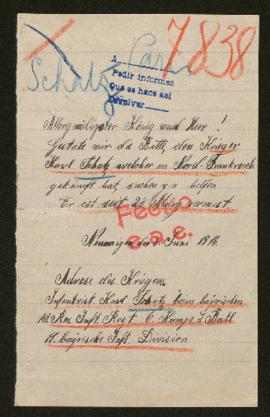 7838
Schotz Paris
A
Pedir informes
que se hace así
devolver
Allergnädigster König und Herr !
Gestate mir die Bitte, den Krieger
Karl Schotz welcher in Nord Frankreich
gekämft hat suchen zu helfen
Er ist seit 23 März vermist
Fecho
e.a.e.
den 7 Juni 1916.
Adrese des Kriegers
Infantrist Karl Schotz beim bayrischen
Res. Inft. Regt 6. Komp. I. Batl
11. bayrische Inft. Division